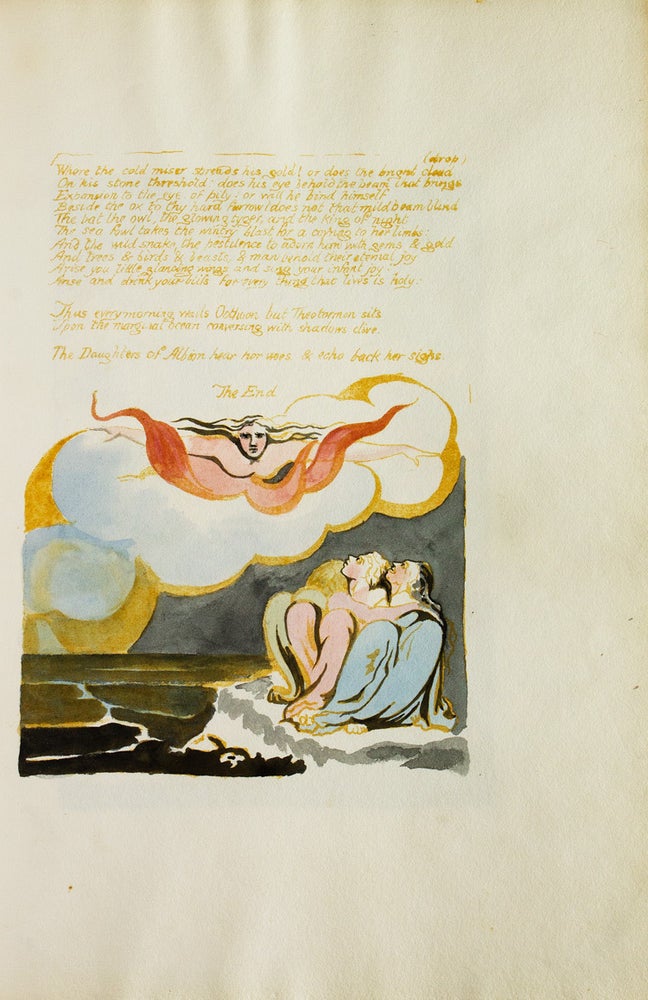 (drop)
Where the cold miser spreads his gold! or does the bright cloud
On his stone threshold! does his eye behold the beam that brings
Expansion to the eye of pity? or will he bind himself
Beside the ox to thy hard furrow! does not that mild beam blind
The bat, the owl, the glowing tyger, and the king of night
The sea fowl takes the wintry blast for a cov'ring to her limbs:
And the wild snake, the pestilence to adorn him with gems & gold
And trees & birds & beasts, & men behold their eternal joy
Arise you little glancing wings, and sing your infant joy!
Arise and drink your bliss for every thing that lives is holy:
Thus every morning wails Oothoon, but Theotormon sits
Upon the margind ocean conversing with shadows dire.
The Daughters of Albion hear her woes, & echo back her sighs.
The End